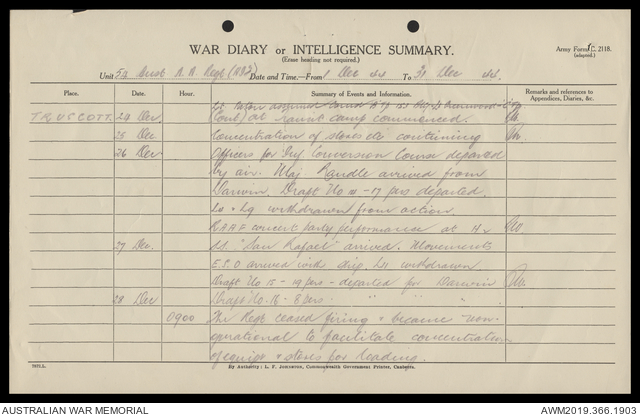 WAR DIARY or INTELLIGENCE SUMMARY.
(Erase heading not required.)
Army Form C. 2118.
(adapted.)
Unit 52 Aust A.A. Regt Date and Time—From 1 Dec 44 To 31 Dec 44.
Place. Date. Hour. Summary of Events and Information. Remarks and references to Appendices, Diaries, &c.
Lt assumed
TRUSCOTT. 24 Dec. at transit camp commenced.
25 Dec Concentration of stores etc continuing
26 Dec Officers for Inf. Conversion Course departed
by air. Maj Randle arrived from
Darwin. Draft No - 17 pers departed.
L4 & L9 withdrawn from action.
RAAF concert party performance at H
27 Dec. "San Rafael" arrived. Movements
E.S.O arrived with ship. L11 withdrawn
Draft No 15 - 19 pers - departed for Darwin
28 Dec Draft No. 16 - 8 pers. " " "
0900 The Regt ceased firing & became non-
operational to facilitate concentration
of equip & stores for loading.
By Authority: L. F. Johnston, Commonwealth Government Printer, Canberra.
AUSTRALIAN WAR MEMORIAL
AWM2019.366.1903